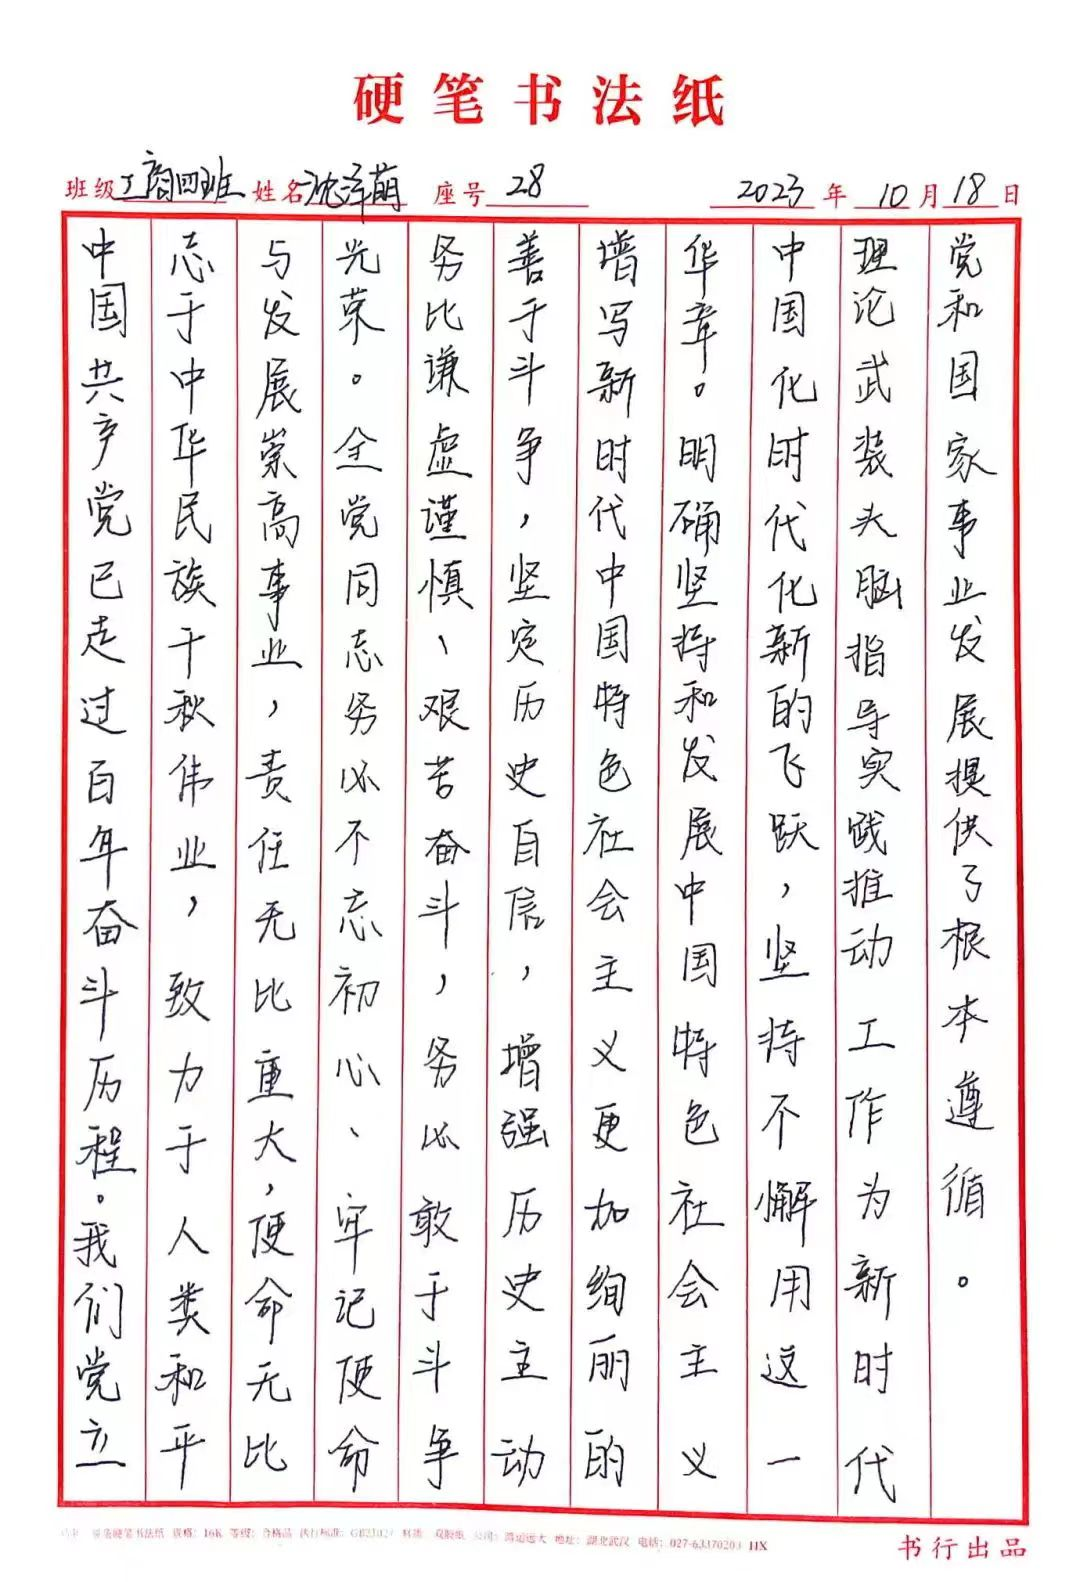 硬笔书法纸
班级 工商四班 姓名 沈泽萌 座号 28 2023 年 10 月 18 日
中国共产党已走过百年奋斗历程。我们党立
志于中华民族千秋伟业，致力于人类和平
与发展崇高事业，责任无比重大，使命无比
光荣。全党同志务必不忘初心、牢记使命
务比谦虚谨慎、艰苦奋斗，务必敢于斗争
善于斗争，坚定历史自信，增强历史主动
增写新时代中国特色社会主义更加绚丽的
华章。明确坚持和发展中国特色社会主义
中国化时代化新的飞跃，坚持不懈用这一
理论武装头脑指导实践推动工作为新时代
党和国家事业发展提供了根本遵循。
硬笔书法纸 规格：16K 等级：合格品 执行标准： 双胶纸 地址：湖北武汉 电话：027-63370203 HX
书行出品